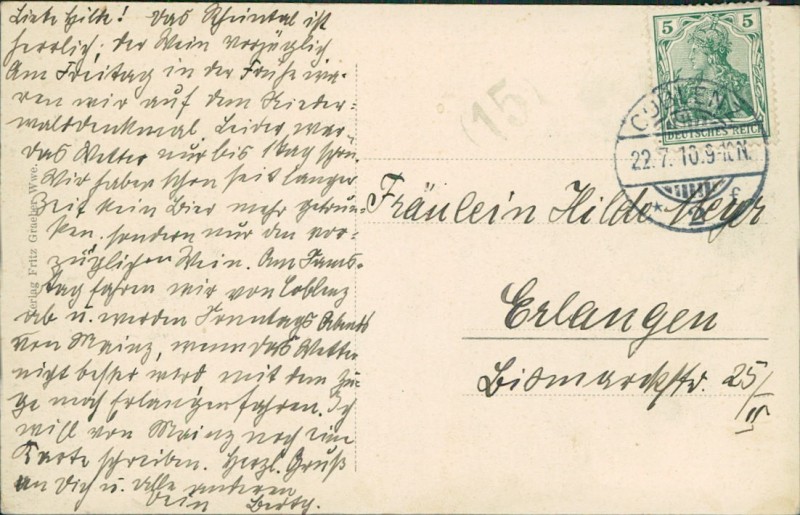 Liebe Hilde! Das Rheintal ist
herrlich, der Wein vorzüglich
Am Freitag in der Frühe wa-
ren wir auf dem Nieder-
walddenkmal. Leider war
das Wetter nur bis Mag schön.
Wir haben schon seit langer
Zeit kein Bier mehr getrun-
ken, sondern nur den vor-
züglichen Wein. Am Sams-
tag fahren wir von Coblenz
ab u. werden Sonntags Abends
von Mainz, wenn das Wetter
nicht besser wird mit dem Zu-
ge nach Erlangen fahren. Ich
will von Mainz noch eine
Karte schreiben. Herzl. Gruß
an Dich u. alle anderen
Dein
Verlag Fritz Graeber Wwe.
(15)
5 5
DEUTSCHES REICH
COBLENZ
22.7.10.9-10N.
* f
Fräulein Hilde Meyer
Erlangen
Bismarckstr. 25/II